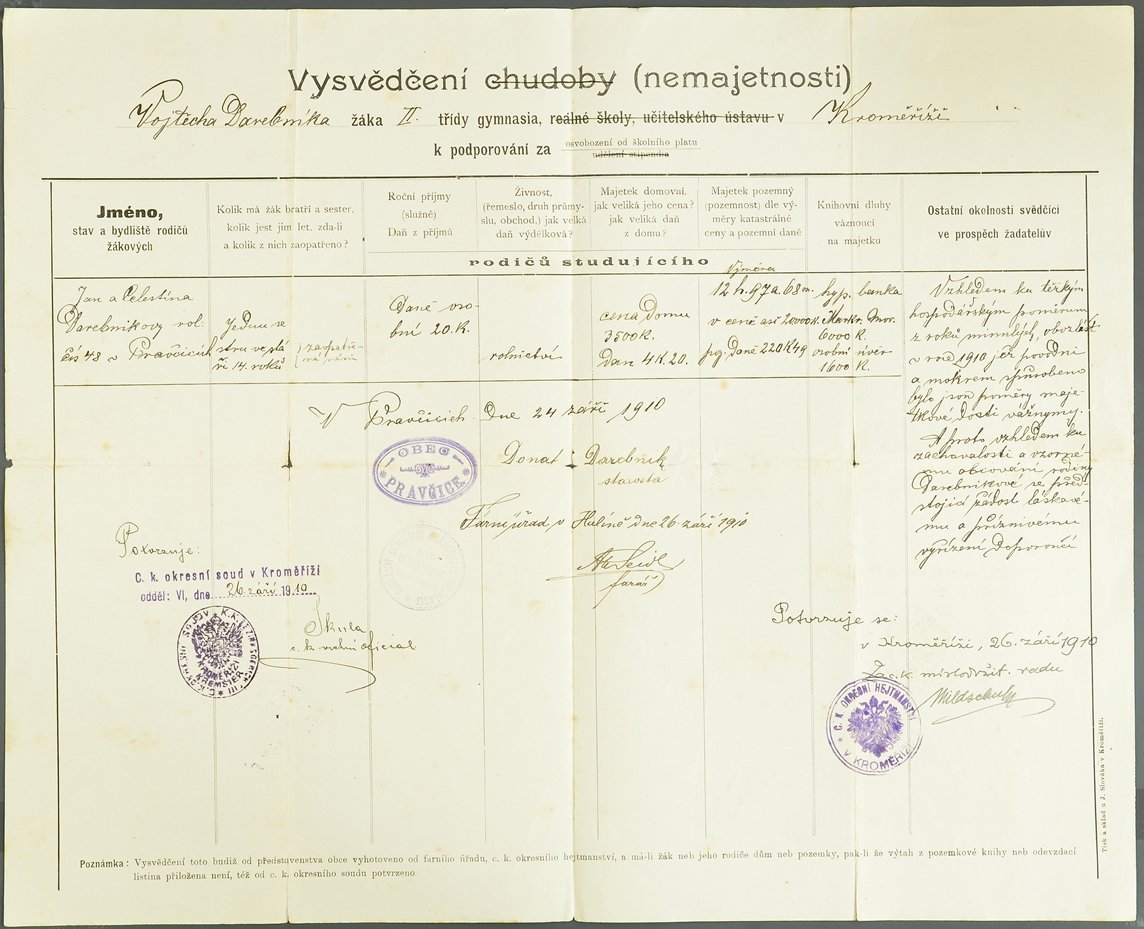 Vysvědčení chudoby (nemajetnosti)
Vojtěcha Darebníka žáka II. třídy gymnasia, reálné školy, učitelského ústavu v Kroměříži
k podporování za osvobození od školního platu
udělení stipendia
Jméno,
stav a bydliště rodičů
žákových
Kolik má žák bratří a sester,
kolik jest jim let, zda-li
a kolik z nich zaopatřeno?
Roční příjmy
(služné)
Daň z příjmů
Živnost,
(řemeslo, druh průmy-
slu, obchod,) jak velká
daň výdělková?
Majetek domovní,
jak veliká jeho cena?
jak veliká daň
z domu?
Majetek pozemný
(pozemnost) dle vý-
měry katastrálné
ceny a pozemní daně
Knihovní dluhy
váznoucí
na majetku
Ostatní okolnosti svědčící
ve prospěch žadatelův
rodičů studujícího
Jan a Celestina
Darebníkovy rol.
čís 48 v Pravčicích
Jednu se
stru ve stá
ří 14. roků
Daně oso-
bní 20. K.
rolnictví
cena domu
3500 K.
Daň 4 K 20.
Výměra
12 h. 97 a. 68 m.
v ceně asi 24000 K.
poz. Daně 220 K 49
hyp. banka
Markr. Mor.
6000 K.
osobní úvěr
1600 K.
Vzhledem ku těžkým
hospodářským poměrům
z roků minulých, obvzlášť
v roce 1910 jež povodní
a mokrem způsobeno
bylo jsou poměry maje-
tkové dosti vážnymy.
A proto vzhledem ku
zachovalosti a vzorné-
mu obcování rodiny
Darebníkové se před-
stojící žádost láskavé-
mu a příznivému
vyřízení doporoučí
V Pravčicích dne 24 září 1910
OBEC
PRAVČICE
Donat Darebník
starosta
Farní úřad v Hulíně dne 26. září 1910
Ant Seidl
farář
Potvrzuje:
C. k. okresní soud v Kroměříži
odděl: VI, dne 26. září 1910
KROMĚŘÍŽI
KREMSIER
Škula
c. k. official
Potvrzuje se:
v Kroměříži, 26. září 1910
Za c. k. místodržit. radu
C. K. OKRESNÍ HEJTMANSTVÍ
V KROMĚŘÍŽI
Poznámka: Vysvědčení toto budiž od představenstva obce vyhotoveno od farního úřadu, c. k. okresního hejtmanství, a má-li žák neb jeho rodiče dům neb pozemky, pak-li že výtah z pozemkové knihy neb odevzdací
listina přiložena není, též od c. k. okresního soudu potvrzeno.
Tisk a sklad u J. Slováka v Kroměříži.